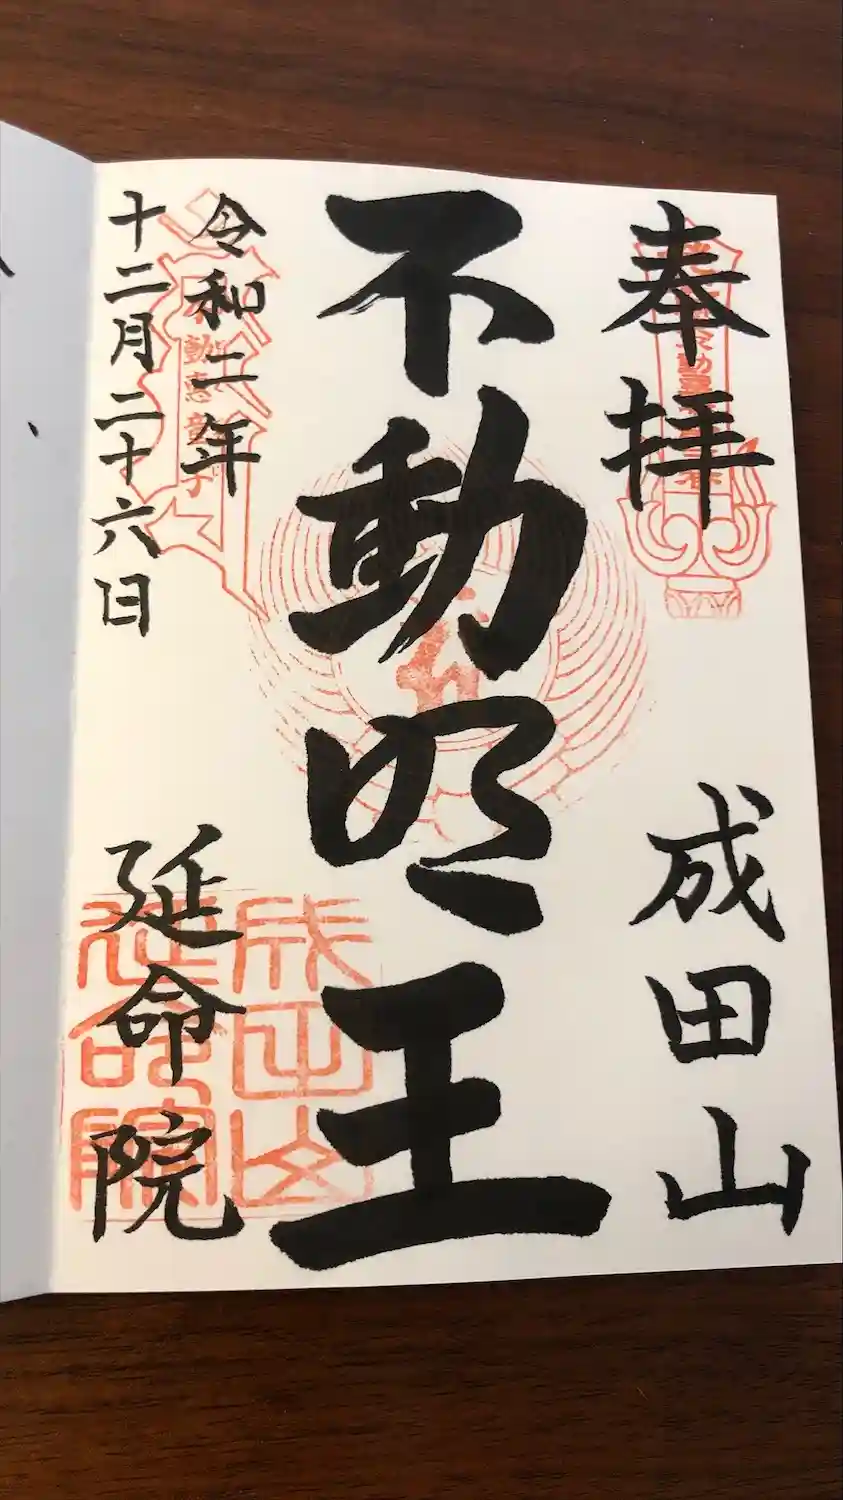 奉拝
成田山
不動明王
令和二年
十二月二十六日
延命院
成田山
延命院